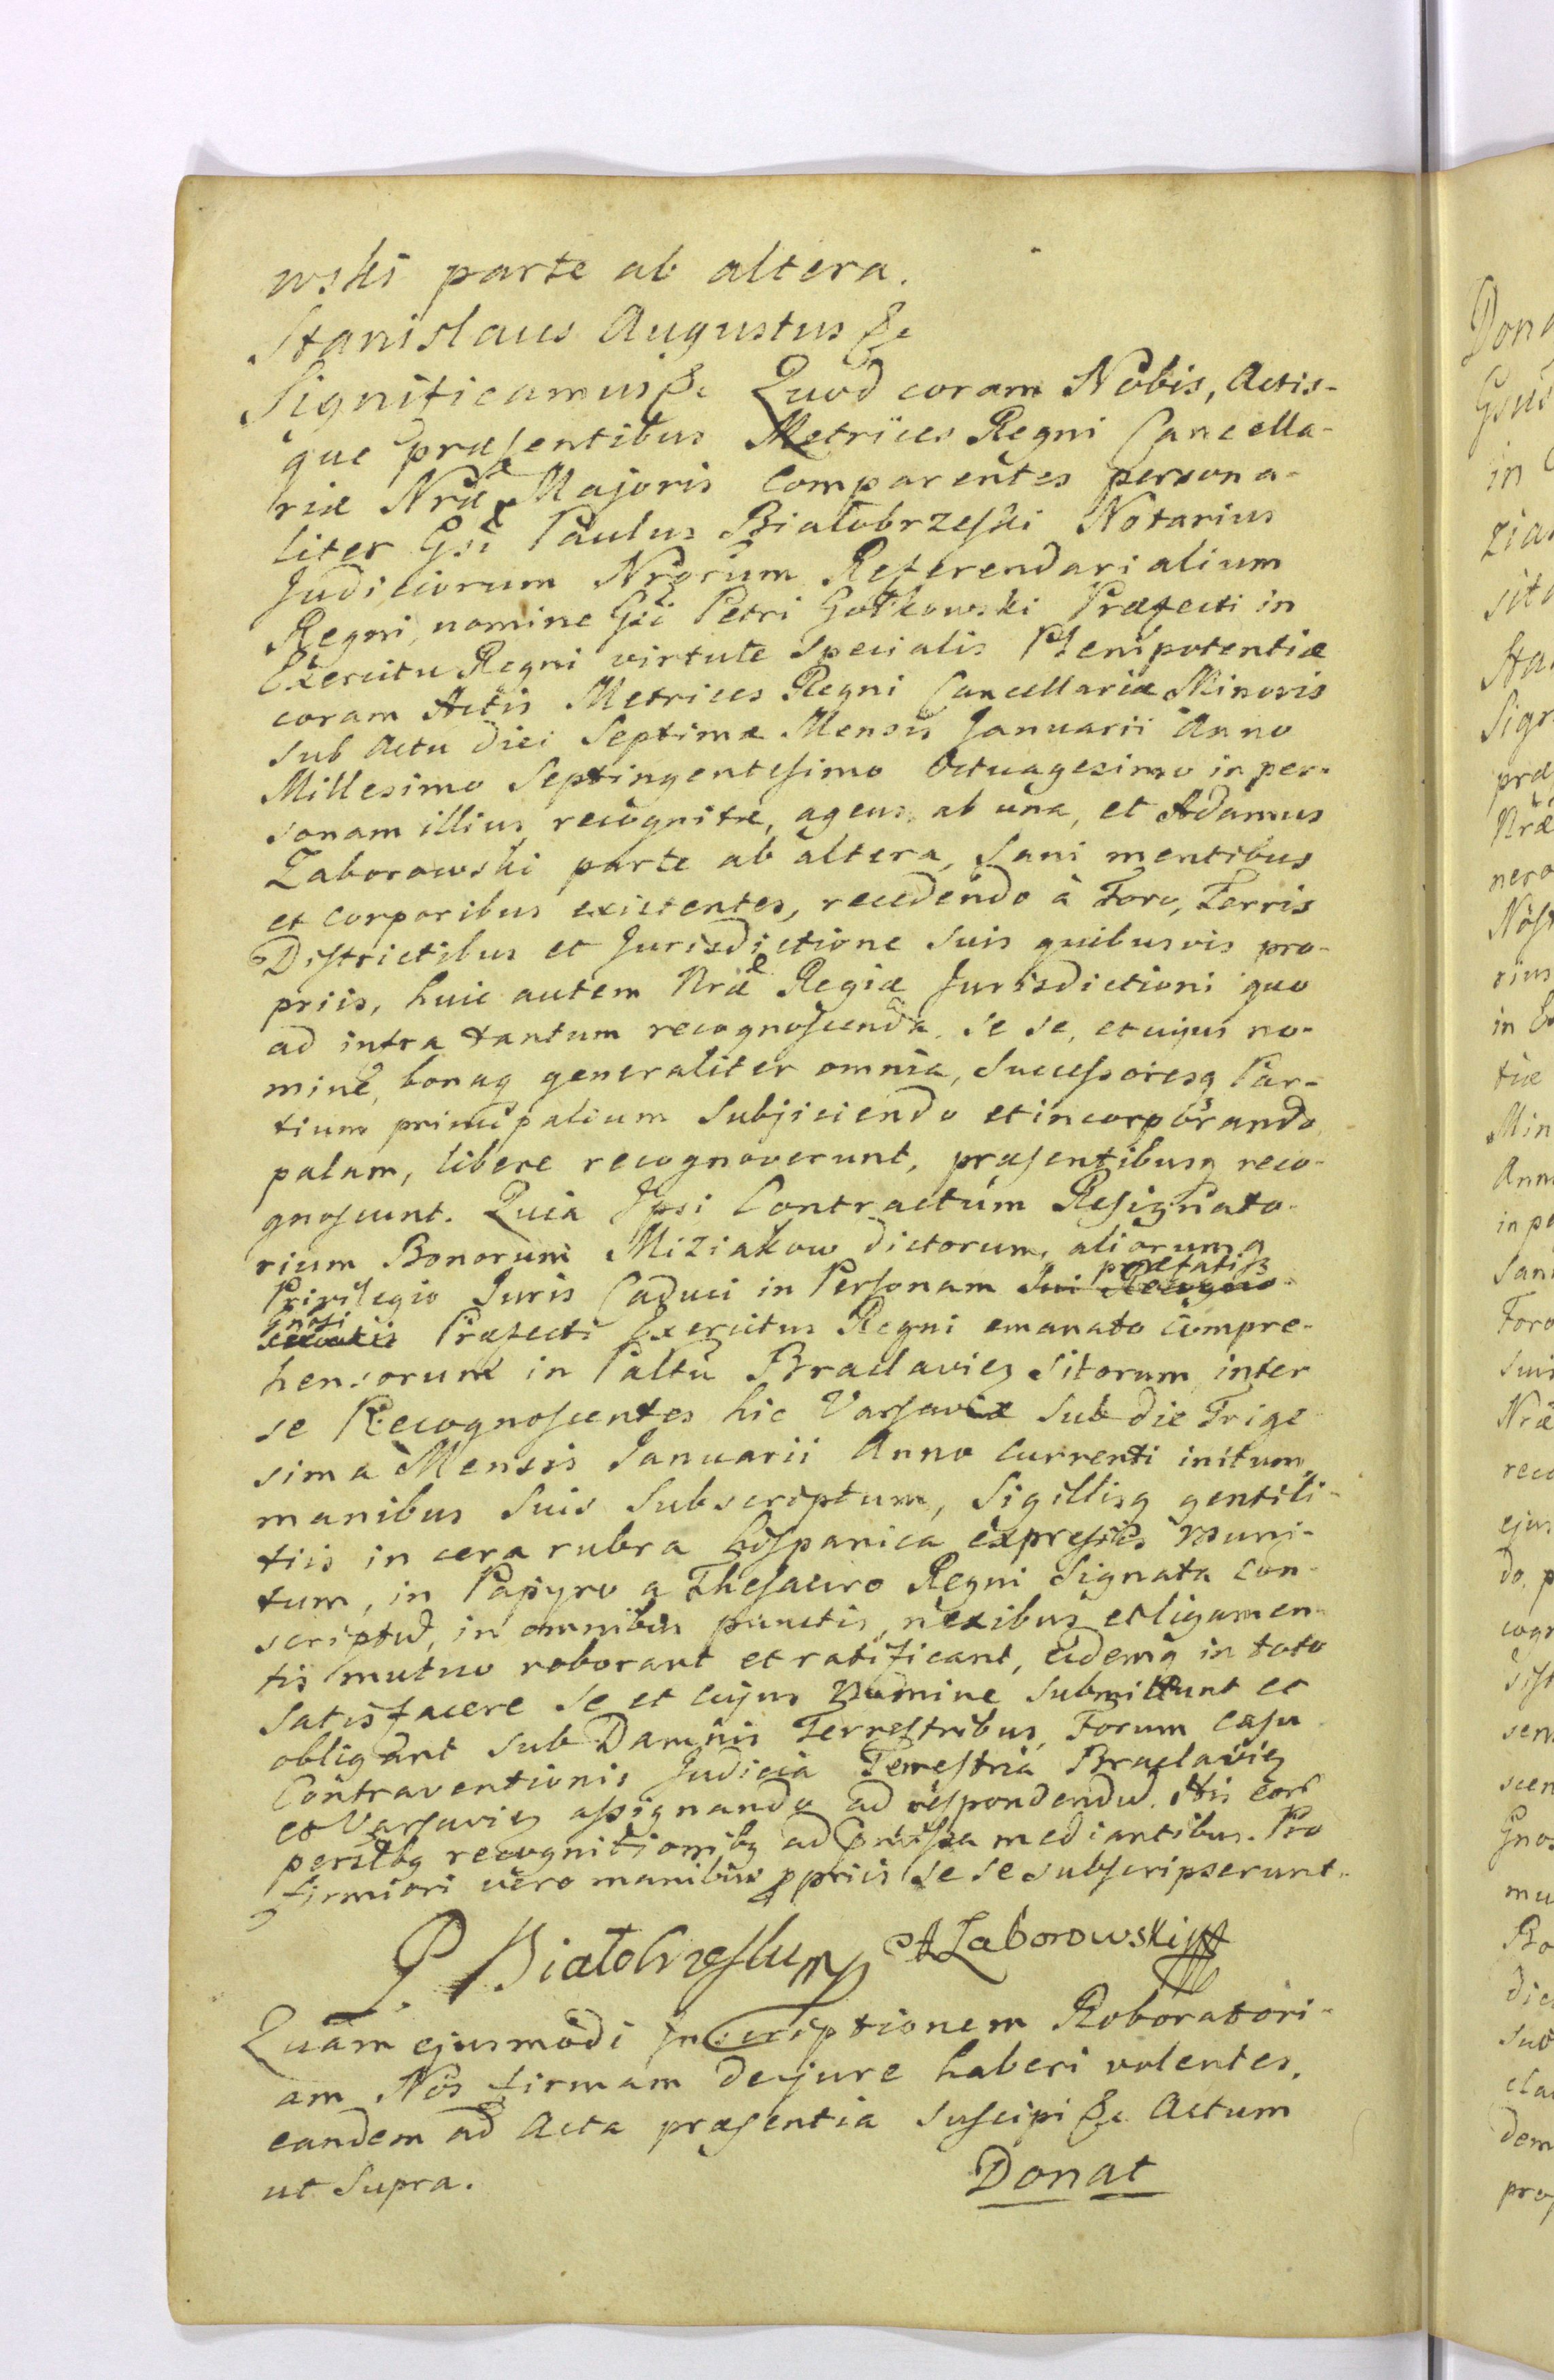 wski parte ab altera.
Stanislaus Augustus &c
Significamus &c Quod coram Nobis, Actis-
que præsentibus Metrices Regni Cancella-
riæ Nræ Majoris Comparentes persona-
liter Gsi Paulus Białobrzeski Notarius
Judiciorum Nrorum Referendarialium
Regni, nomine Gsi Petri Gołkowski Præfecti in
Exercitu Regni virtute Specialis Plenipotentiæ
coram Actis Metrices Regni Cancellariæ Minoris
sub Actu diei Septimæ Mensis Januarii Anno
Millesimo Septingentesimo Octuagesimo in per-
sonam illius recognitæ, agens ab una, et Adamus
Zaborowski parte ab altera, Sani mentibus
et corporibus existentes, recedendo à Foro, Terris
Districtibus et Jurisdictione suis quibusvis pro-
priis, huic autem Nræ Regiæ Jurisdictioni quo
ad intra tantum recognoscenda se se, et cujus no-
mine, bonaq generaliter omnia, Successoresq Par-
tium principalium Subjiciendo et incorporando
palam, libere recognoverunt, præsentibusq reco-
gnoscunt. Quia Ipsi Contractum Resignato-
rium Bonorum Miziakow dictorum, aliorumq
Privilegio Juris Caduci in Personam præfati
Gnosi Præfecti Exercitus Regni emanato compre-
hensorum in Palttu Braclavien Sitorum inter
se Recognoscentes hic Varsaviæ Sub die Trige
sima Mensis Januarii Anno Currenti initum,
manibus Suis Subscriptum, Sigillisq gentili-
tiis in cera rubra hispanica expressis muni-
tum, in Papyro a Thesauro Regni Signata Con-
scriptu, in omnibus punctis, nexibus et ligamen
tis mutuo roborant et ratificant, eidemq in toto
Satisfacere se et cujus nomine Submittunt et
obligant sub Damnis Terrestribus, Forum casu
Contraventionis Judicia Terrestria Braclavien
et Varsavien assignando ad respondendu. His eor
persltbq recognitionibq ad præmissa mediantibus. Pro
firmiori vero manibus ppriis se se subscripserunt.
P. Białobrzeski mp A Zaborowski mp
Quam ejusmodi Inscriptionem Roboratori-
am Nos firmam dejure haberi volentes,
eandem ad Acta præsentia Suscipi &c Actum
ut Supra.
Donat